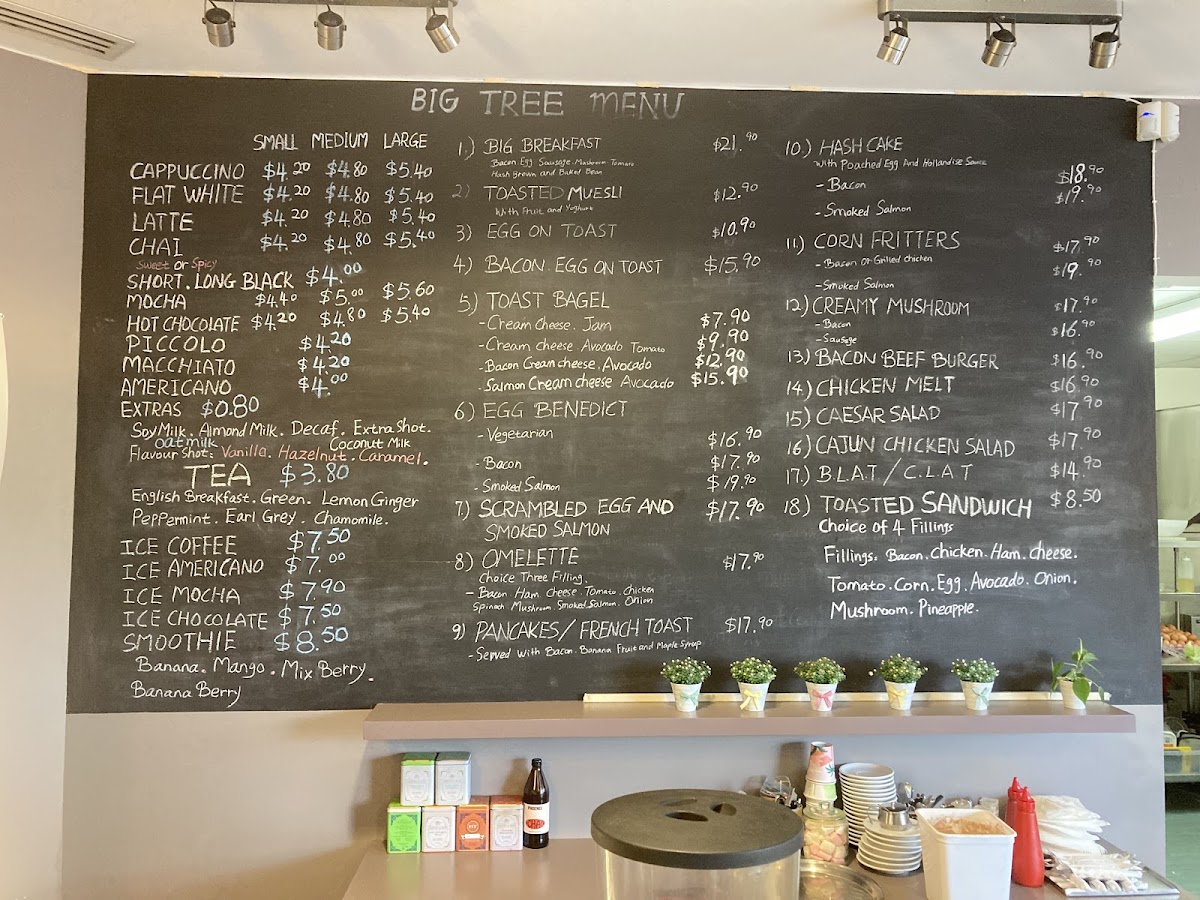 BIG TREE MENU
SMALL MEDIUM LARGE
CAPPUCCINO $4.20 $4.80 $5.40
FLAT WHITE $4.20 $4.80 $5.40
LATTE $4.20 $4.80 $5.40
CHAI $4.20 $4.80 $5.40
Sweet or Spicy
SHORT. LONG BLACK $4.00
MOCHA $4.40 $5.00 $5.60
HOT CHOCOLATE $4.20 $4.80 $5.40
PICCOLO $4.20
MACCHIATO $4.20
AMERICANO $4.00
EXTRAS $0.80
Soy Milk. Almond Milk. Decaf. Extra Shot.
oat milk Coconut Milk
Flavour Shot: Vanilla. Hazelnut. Caramel.
TEA $3.80
English Breakfast. Green. Lemon Ginger
Peppermint. Earl Grey. Chamomile.
ICE COFFEE $7.50
ICE AMERICANO $7.00
ICE MOCHA $7.90
ICE CHOCOLATE $7.50
SMOOTHIE $8.50
Banana. Mango. Mix Berry.
Banana Berry
1.) BIG BREAKFAST $21.90
Bacon Egg Sausage Mushroom Tomato
Hash Brown and Baked Bean
2) TOASTED MUESLI $12.90
With Fruit and Yoghurt
3) EGG ON TOAST $10.90
4) BACON. EGG ON TOAST $15.90
5) TOAST BAGEL
- Cream Cheese. Jam $7.90
- Cream cheese. Avocado Tomato $9.90
- Bacon Cream cheese. Avocado $12.90
- Salmon Cream cheese Avocado $15.90
6) EGG BENEDICT
- Vegetarian $16.90
- Bacon $17.90
- Smoked Salmon $19.90
7.) SCRAMBLED EGG AND $17.90
SMOKED SALMON
8) OMELETTE $17.90
Choice Three Filling.
- Bacon Ham. Cheese. Tomato. Chicken
Spinach Mushroom. Smoked Salmon. Onion
9) PANCAKES/ FRENCH TOAST $17.90
- Served With Bacon. Banana Fruit and Maple Syrup
10.) HASH CAKE
With Poached Egg And Hollandise Sauce
- Bacon $18.90
- Smoked Salmon $19.90
11.) CORN FRITTERS $17.90
- Bacon or Grilled chicken
- Smoked Salmon $19.90
12.) CREAMY MUSHROOM $17.90
- Bacon
- Sausage $16.90
13.) BACON BEEF BURGER $16.90
14.) CHICKEN MELT $16.90
15) CAESAR SALAD $17.90
16) CAJUN CHICKEN SALAD $17.90
17.) B.L.A.T / C.L.A.T $14.90
18) TOASTED SANDWICH $8.50
Choice of 4 Fillings
Fillings. Bacon. Chicken. Ham. cheese.
Tomato. Corn. Egg. Avocado. Onion.
Mushroom. Pineapple.
CHAI